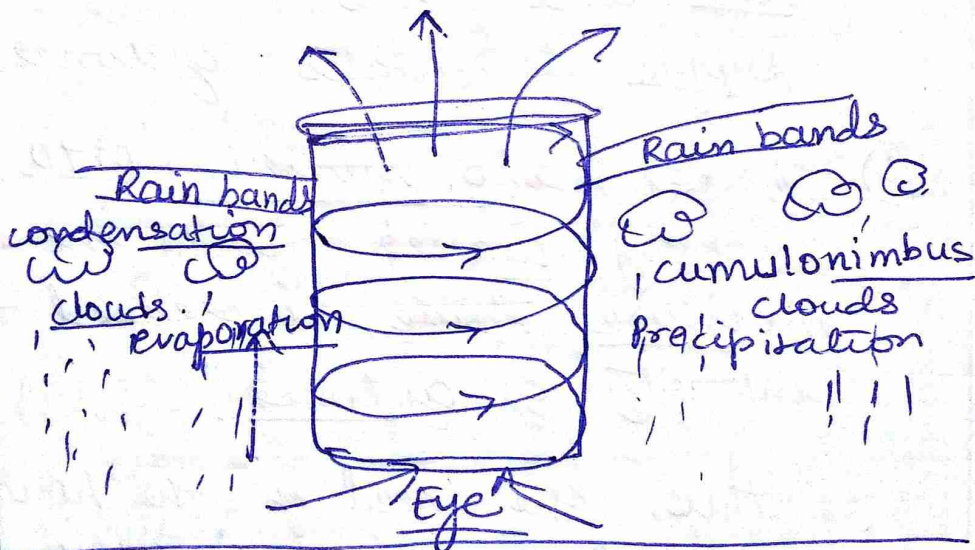 Rain bands
Rain bands
condensation
clouds
evaporation
cumulonimbus
clouds
Precipitation
Eye